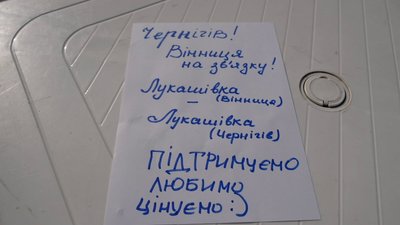 Чернігів!
Вінниця
на зв'язку!
Лукашівка
(Вінниця)
–
Лукашівка
(Чернігів)
ПІДТРИМУЄМО
ЛЮБИМО
ЦІНУЄМО:)